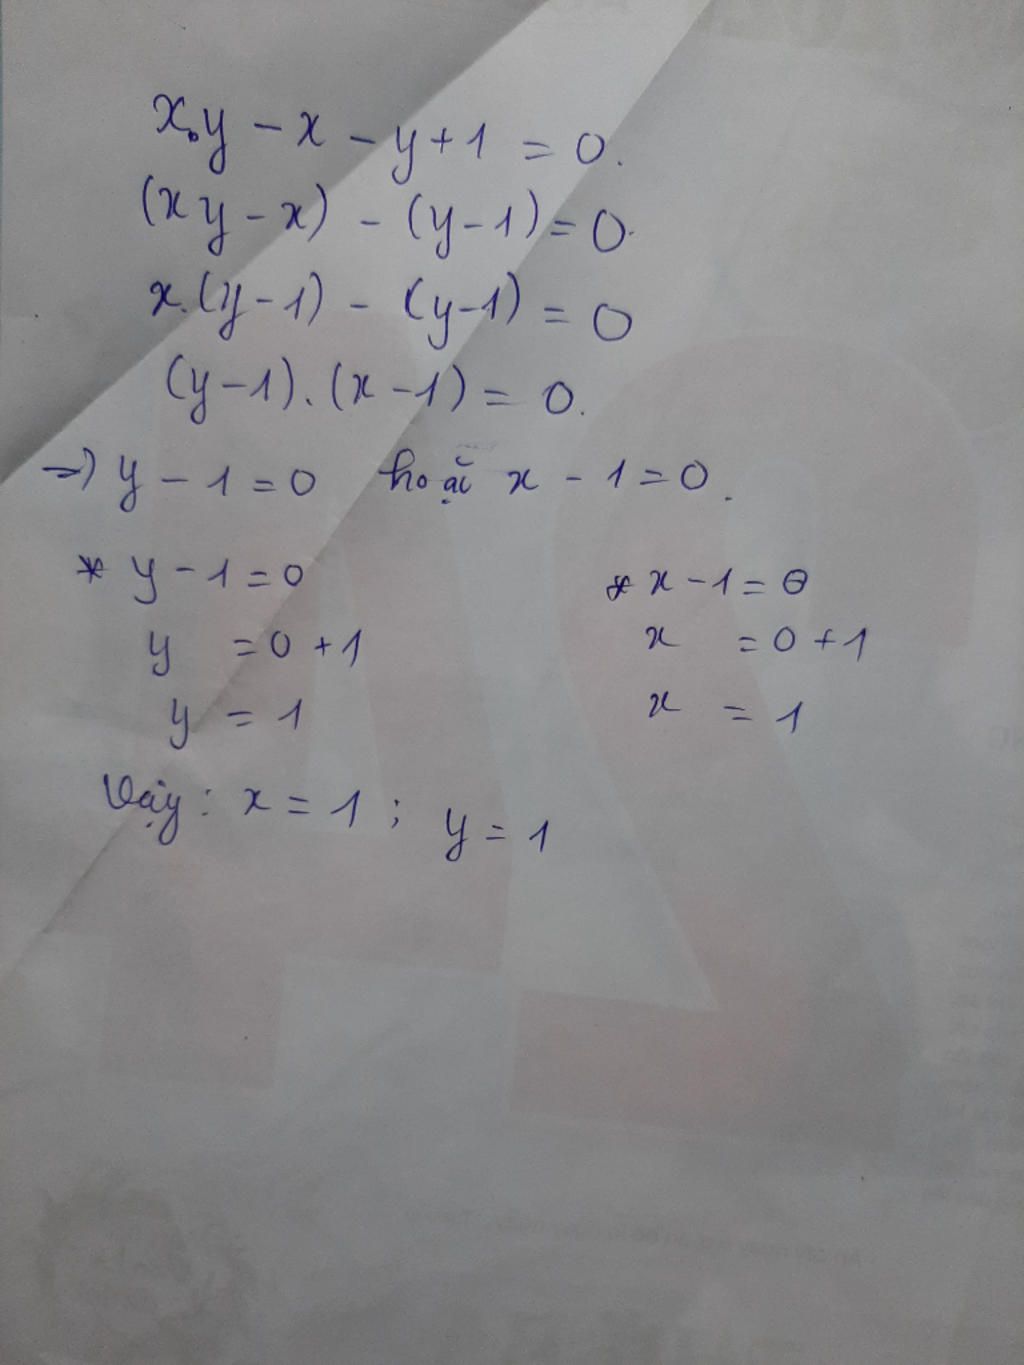 x.y - x - y + 1 = 0.
(xy - x) - (y - 1) = 0.
x.(y - 1) - (y - 1) = 0
(y - 1).(x - 1) = 0.
=> y - 1 = 0 hoặc x - 1 = 0.
* y - 1 = 0 * x - 1 = 0
y = 0 + 1 x = 0 + 1
y = 1 x = 1
Vậy: x = 1 ; y = 1